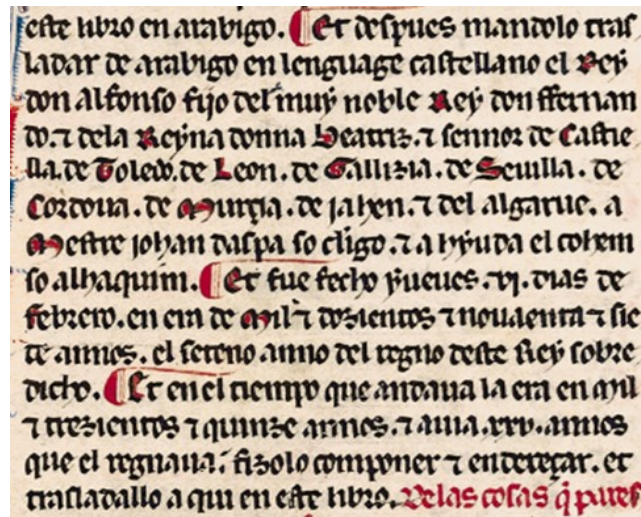 este libro en arabigo. ¶ Et despues mandolo tras
ladar de arabigo en lenguage castellano el Rey
don Alfonso fijo del muy noble Rey don ffernan
do. ⁊ dela Reyna donna Beatriz. ⁊ sennor de Castie
lla. de Toledo. de Leon. de Gallizia. de Seuilla. de
Cordoua. de Murçia. de jahen. ⁊ del algarue. a
Maestre johan daspa so cligo. ⁊ a hyuda el cohem
so alhaquim. ¶ Et fue fecho yueues. vj. dias de
febrero. en era de Mil ⁊ dozientos ⁊ nouaenta ⁊ sie
te annos. el seteno anno del regno deste Rey sobre
dicho. ¶ Et en el tiempo que andaua la era en Mill
⁊ trezientos ⁊ quinze annos. ⁊ auia. xxv. annos
que el regnaua. fizolo componer ⁊ endereçar. et
trasladallo a qui en este libro. Delas cosas q̃ pares